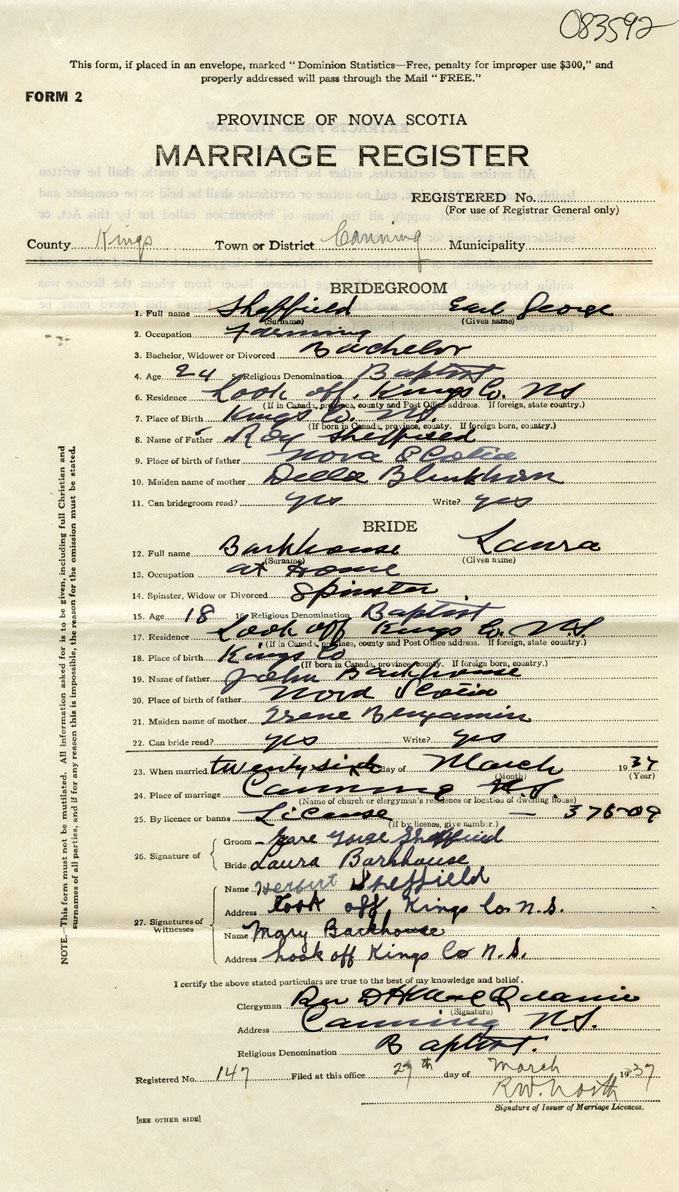 083592
This form, if placed in an envelope, marked "Dominion Statistics—Free, penalty for improper use $300," and
properly addressed will pass through the Mail "FREE."
FORM 2
PROVINCE OF NOVA SCOTIA
MARRIAGE REGISTER
REGISTERED No.
(For use of Registrar General only)
County Kings Town or District Canning Municipality
BRIDEGROOM
1. Full name Sheffield Earl George
(Surname) (Given name)
2. Occupation Farming
3. Bachelor, Widower or Divorced Bachelor
4. Age 24 5. Religious Denomination Baptist
6. Residence Look off, Kings Co. NS
(If in Canada, province, county and Post Office address. If foreign, state country.)
7. Place of Birth Kings Co. N.S.
(If born in Canada, province, county. If foreign born, country.)
8. Name of Father Roy Sheffield
9. Place of birth of father Nova Scotia
10. Maiden name of mother Della Blenkhorn
11. Can bridegroom read? yes Write? yes
BRIDE
12. Full name Barkhouse Laura
(Surname) (Given name)
13. Occupation at Home
14. Spinster, Widow or Divorced Spinster
15. Age 18 16. Religious Denomination Baptist
17. Residence Look off Kings Co. N.S.
(If in Canada, province, county and Post Office address. If foreign, state country.)
18. Place of birth Kings Co
(If born in Canada, province, county. If foreign born, country.)
19. Name of father John Barkhouse
20. Place of birth of father Nova Scotia
21. Maiden name of mother Irene Benjamin
22. Can bride read? yes Write? yes
23. When married twenty sixth day of March 1937
(Month) (Year)
24. Place of marriage Canning N.S.
(Name of church or clergyman's residence or location of dwelling house)
25. By licence or banns License — 37609
(If by licence, give number.)
26. Signature of
Groom George Sheffield
Bride Laura Barkhouse
27. Signatures of Witnesses
Name Herbert Sheffield
Address Look off Kings Co. N.S.
Name Mary Barkhouse
Address Look off Kings Co N.S.
I certify the above stated particulars are true to the best of my knowledge and belief.
Clergyman Rev
(Signature)
Address Canning N.S.
Religious Denomination Baptist.
Registered No. 147 Filed at this office 29th day of March 1937
R.W. North
Signature of Issuer of Marriage Licences.
[SEE OTHER SIDE]
NOTE.—This form must not be mutilated. All information asked for is to be given, including full Christian and
surnames of all parties, and if for any reason this is impossible, the reason for the omission must be stated.